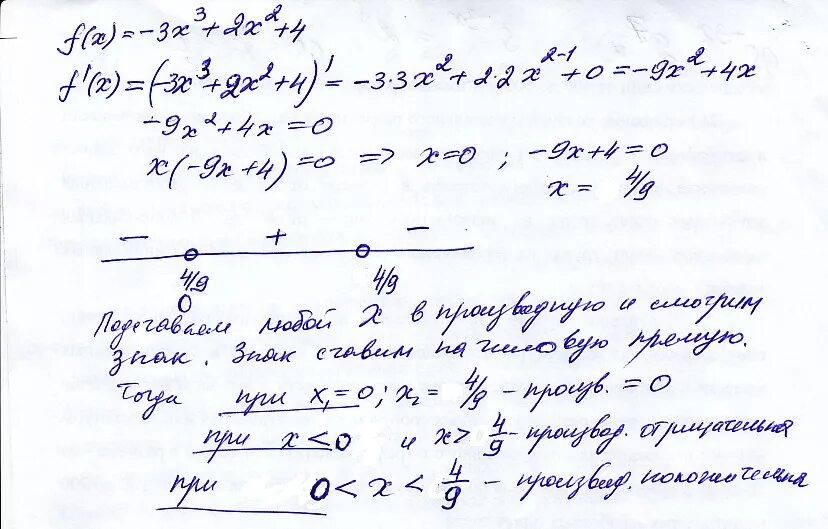 f(x)=-3x³+2x²+4
f'(x)=(-3x³+2x²+4)'=-3·3x²+2·2x²⁻¹+0=-9x²+4x
-9x²+4x=0
x(-9x+4)=0 => x=0; -9x+4=0
x= 4/9
- + -
4/9 4/9
0
Подставляем любой X в производную и смотрим
знак. Знак ставим на числовую прямую.
Тогда при x₁=0; x₂=4/9 - произв.=0
при x<0 и x>4/9 - производ. отрицательна
при 0<x<4/9 - производ. положительна